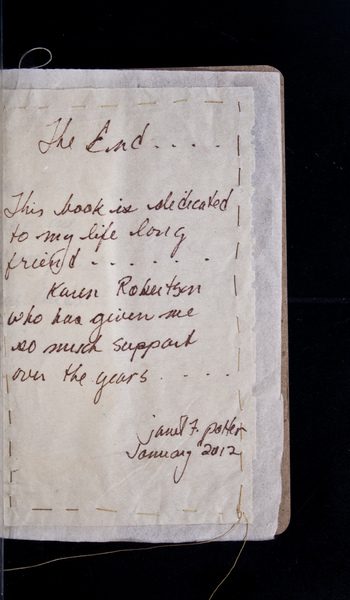 The End.....
This book is dedicated
to my life long
friend .......
Karen Robertson
who has given me
so much support
over the years.....
janet F. potter
January 2012